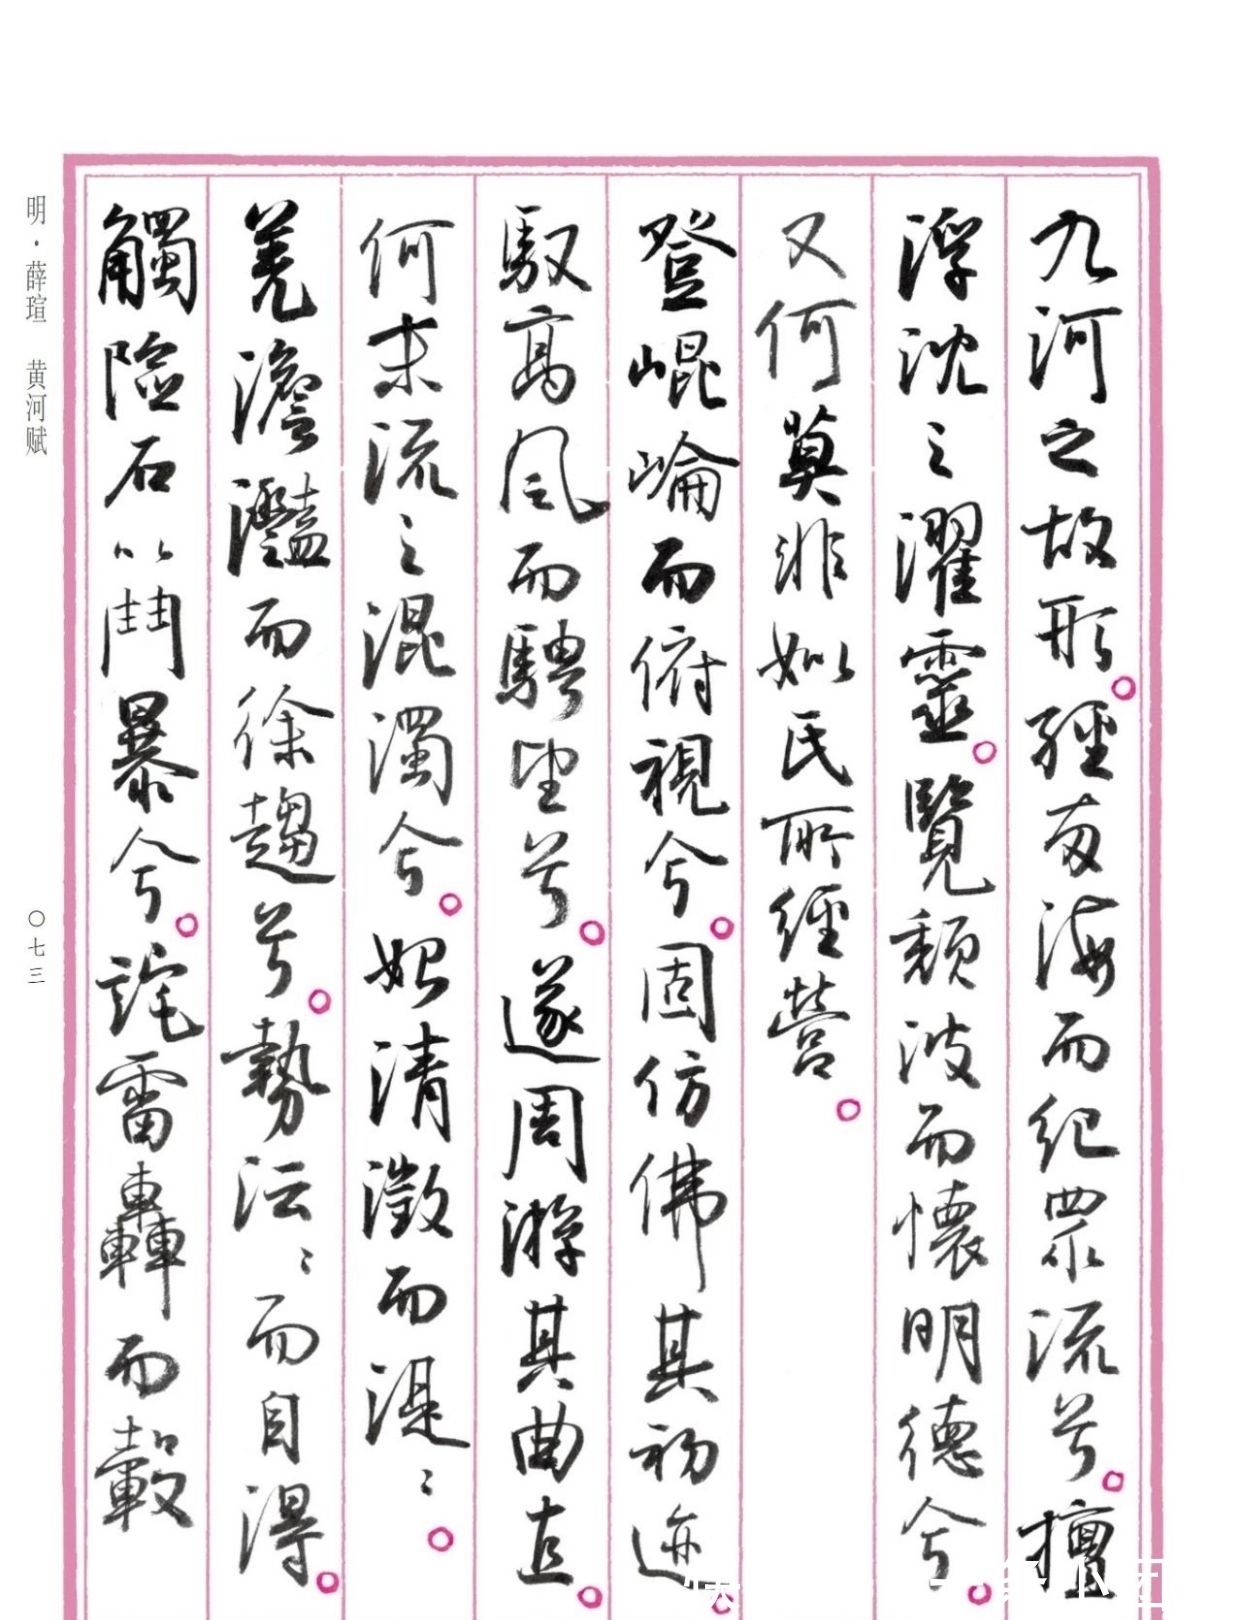 九河之故形經南海而紀眾流兮擅
浮沈之濯靈覽頹波而懷明德兮
又何莫非如民所經營
登崐崙而俯視兮固仿佛其初迹
馭高風而騁望兮遂周游其曲直
何末流之混濁兮始清澂而湜ミ
羌澹灩而徐趨兮勢沄ミ而自得
觸險石以鬥暴兮詫雷轟而轂
明·薛瑄 黄河赋
〇七三